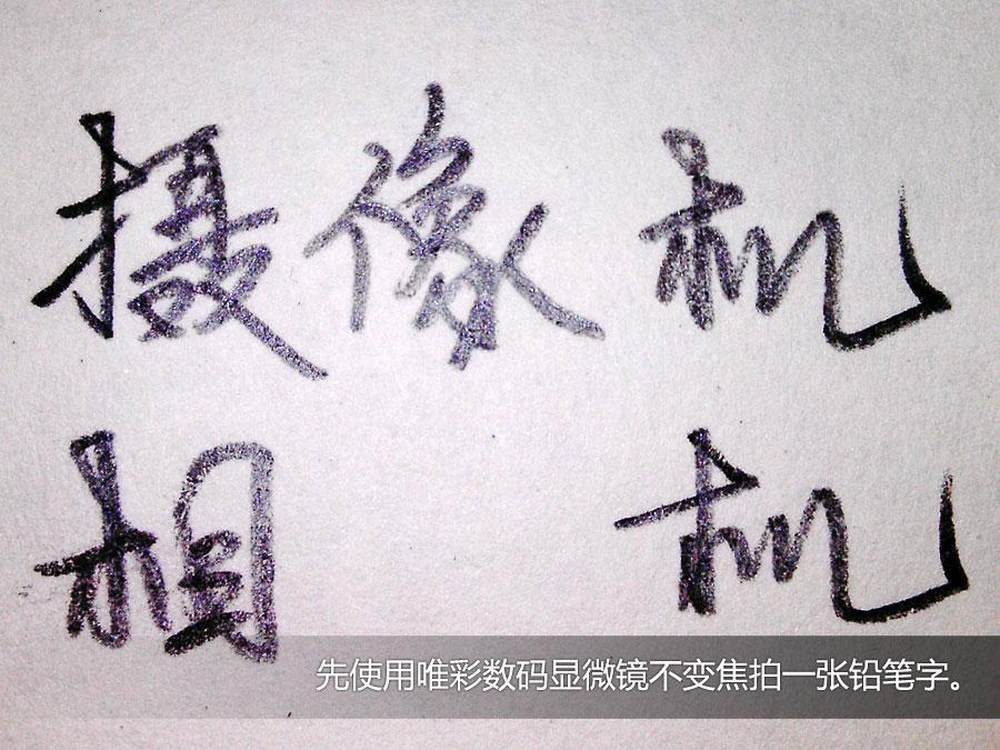 摄像机
相 机
先使用唯彩数码显微镜不变焦拍一张铅笔字。